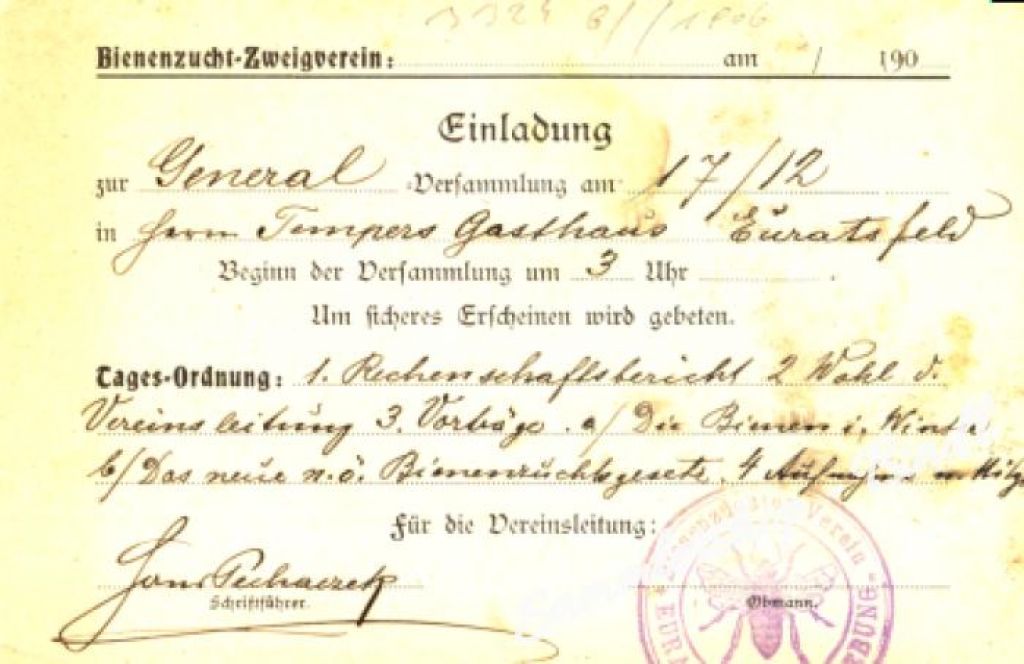 3324 6/ / 1906
Bienenzucht-Zweigverein: am / 190
Einladung
zur General -Versammlung am 17/12
in Herrn Tempers Gasthaus Euratsfeld
Beginn der Versammlung um 3 Uhr .
Um sicheres Erscheinen wird gebeten.
Tages-Ordnung: 1. Rechenschaftsbericht 2 Wahl d.
Vereinsleitung 3. Vorträge. a/ Die Bienen i. Winter
b/ Das neue n.ö. Bienenzuchtsgesetz. 4
Für die Vereinsleitung:
Hans Pechaczek
Schriftführer. Obmann.
Verein